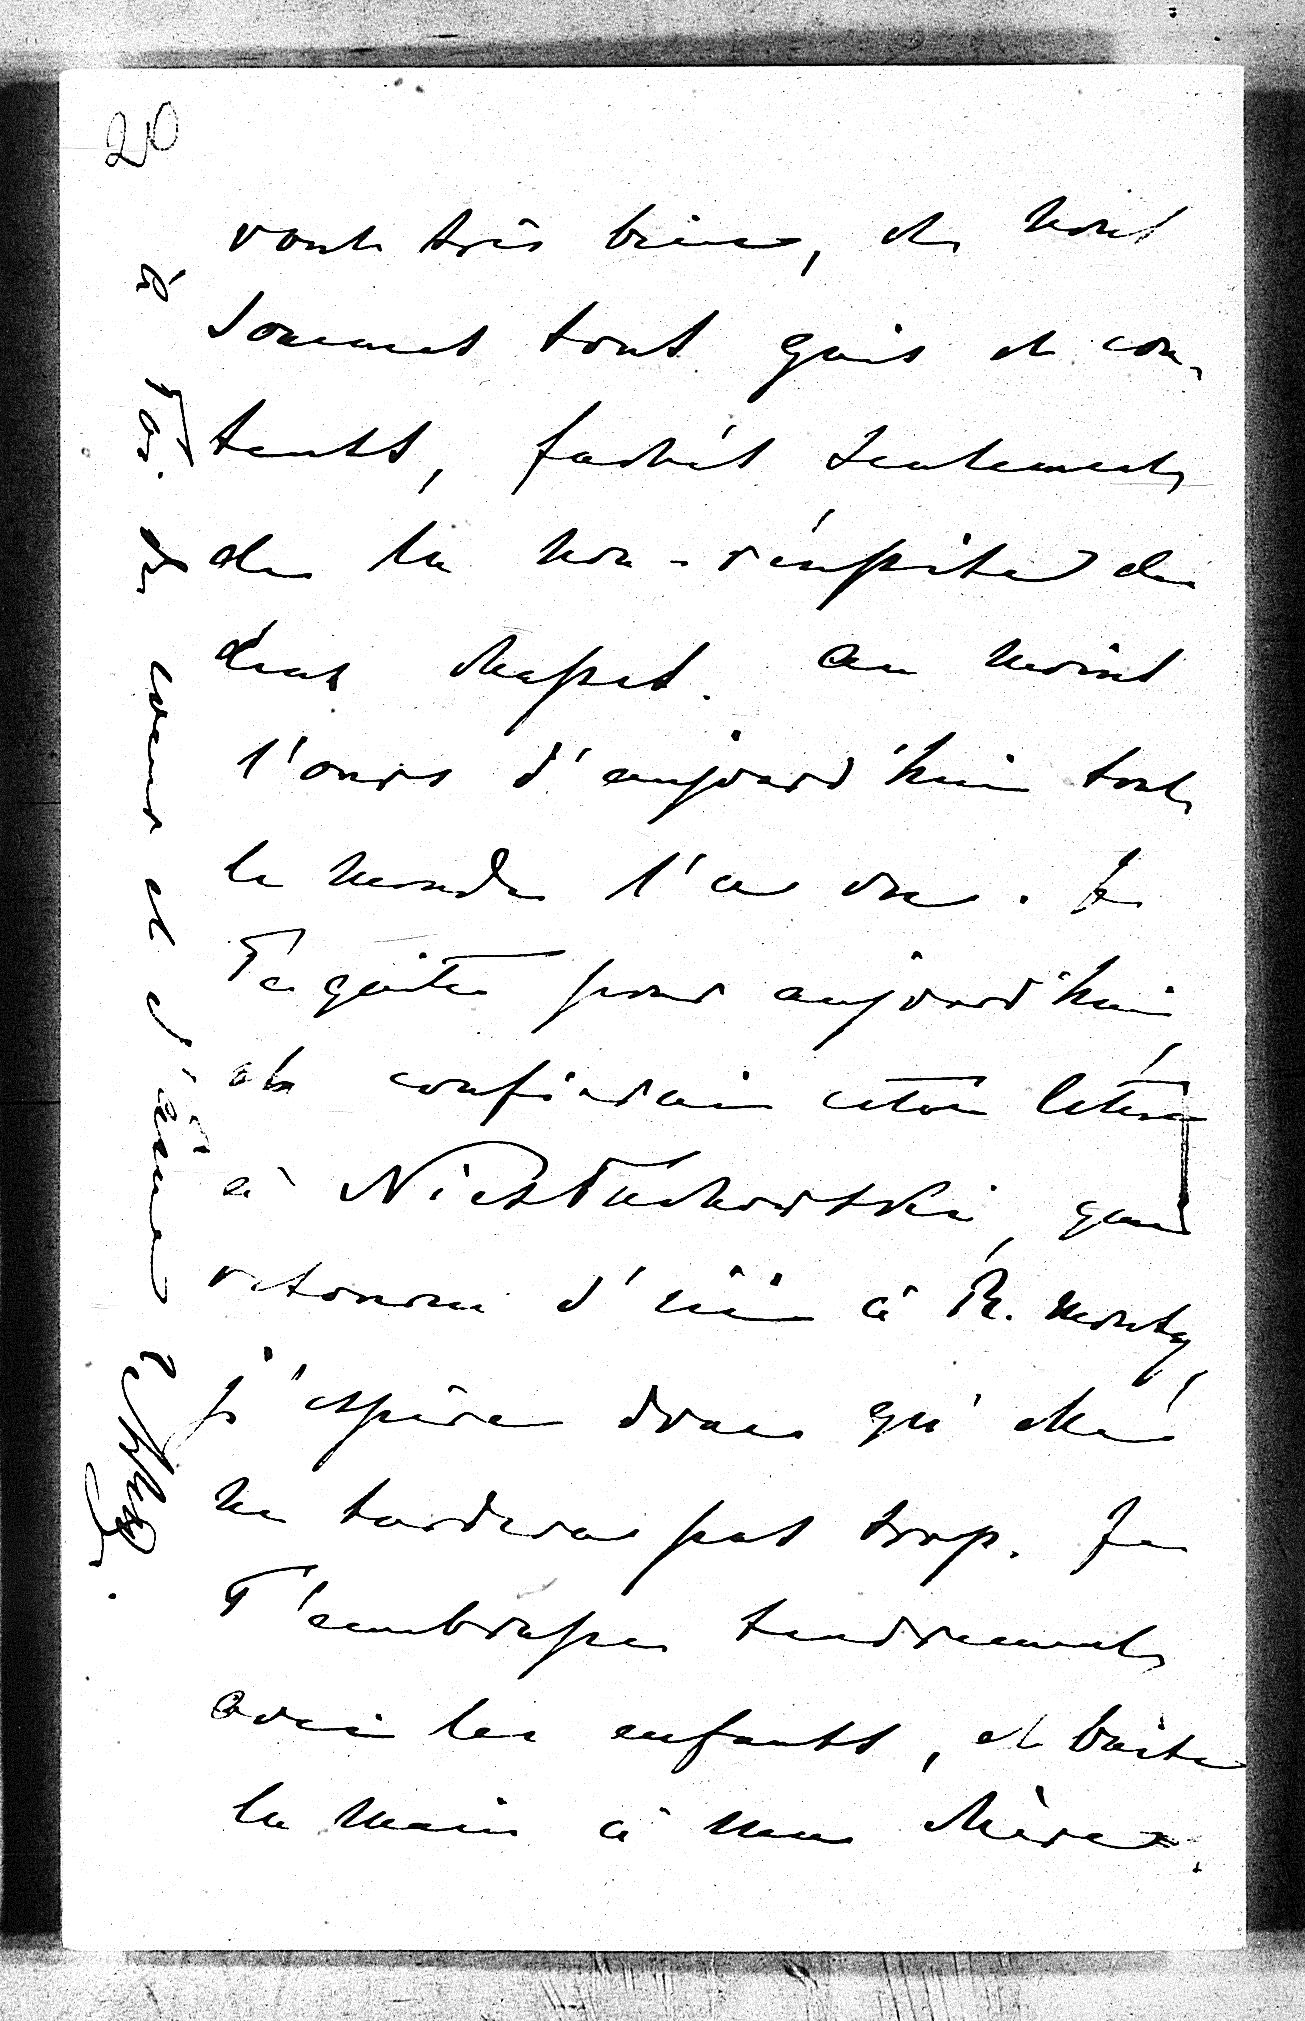 20
vont très bien, et nous
sommes tous gais et con-
tents, fachés seulement
de la non-réussite de
deux chasses. Au moins
l'ours d'aujourd'hui tout
le monde l'a vu. Je
Te quitte pour aujourd'hui,
et confierai cette lettre
à Niestuchowski, qui
retourne d'ici à R. Monty,
j'espère donc qu'elle
ne tardera pas trop. Je
T'embrasse tendrement
avec les enfants, et baise
la main à ma chère.
à Toi de cœur et d'âme